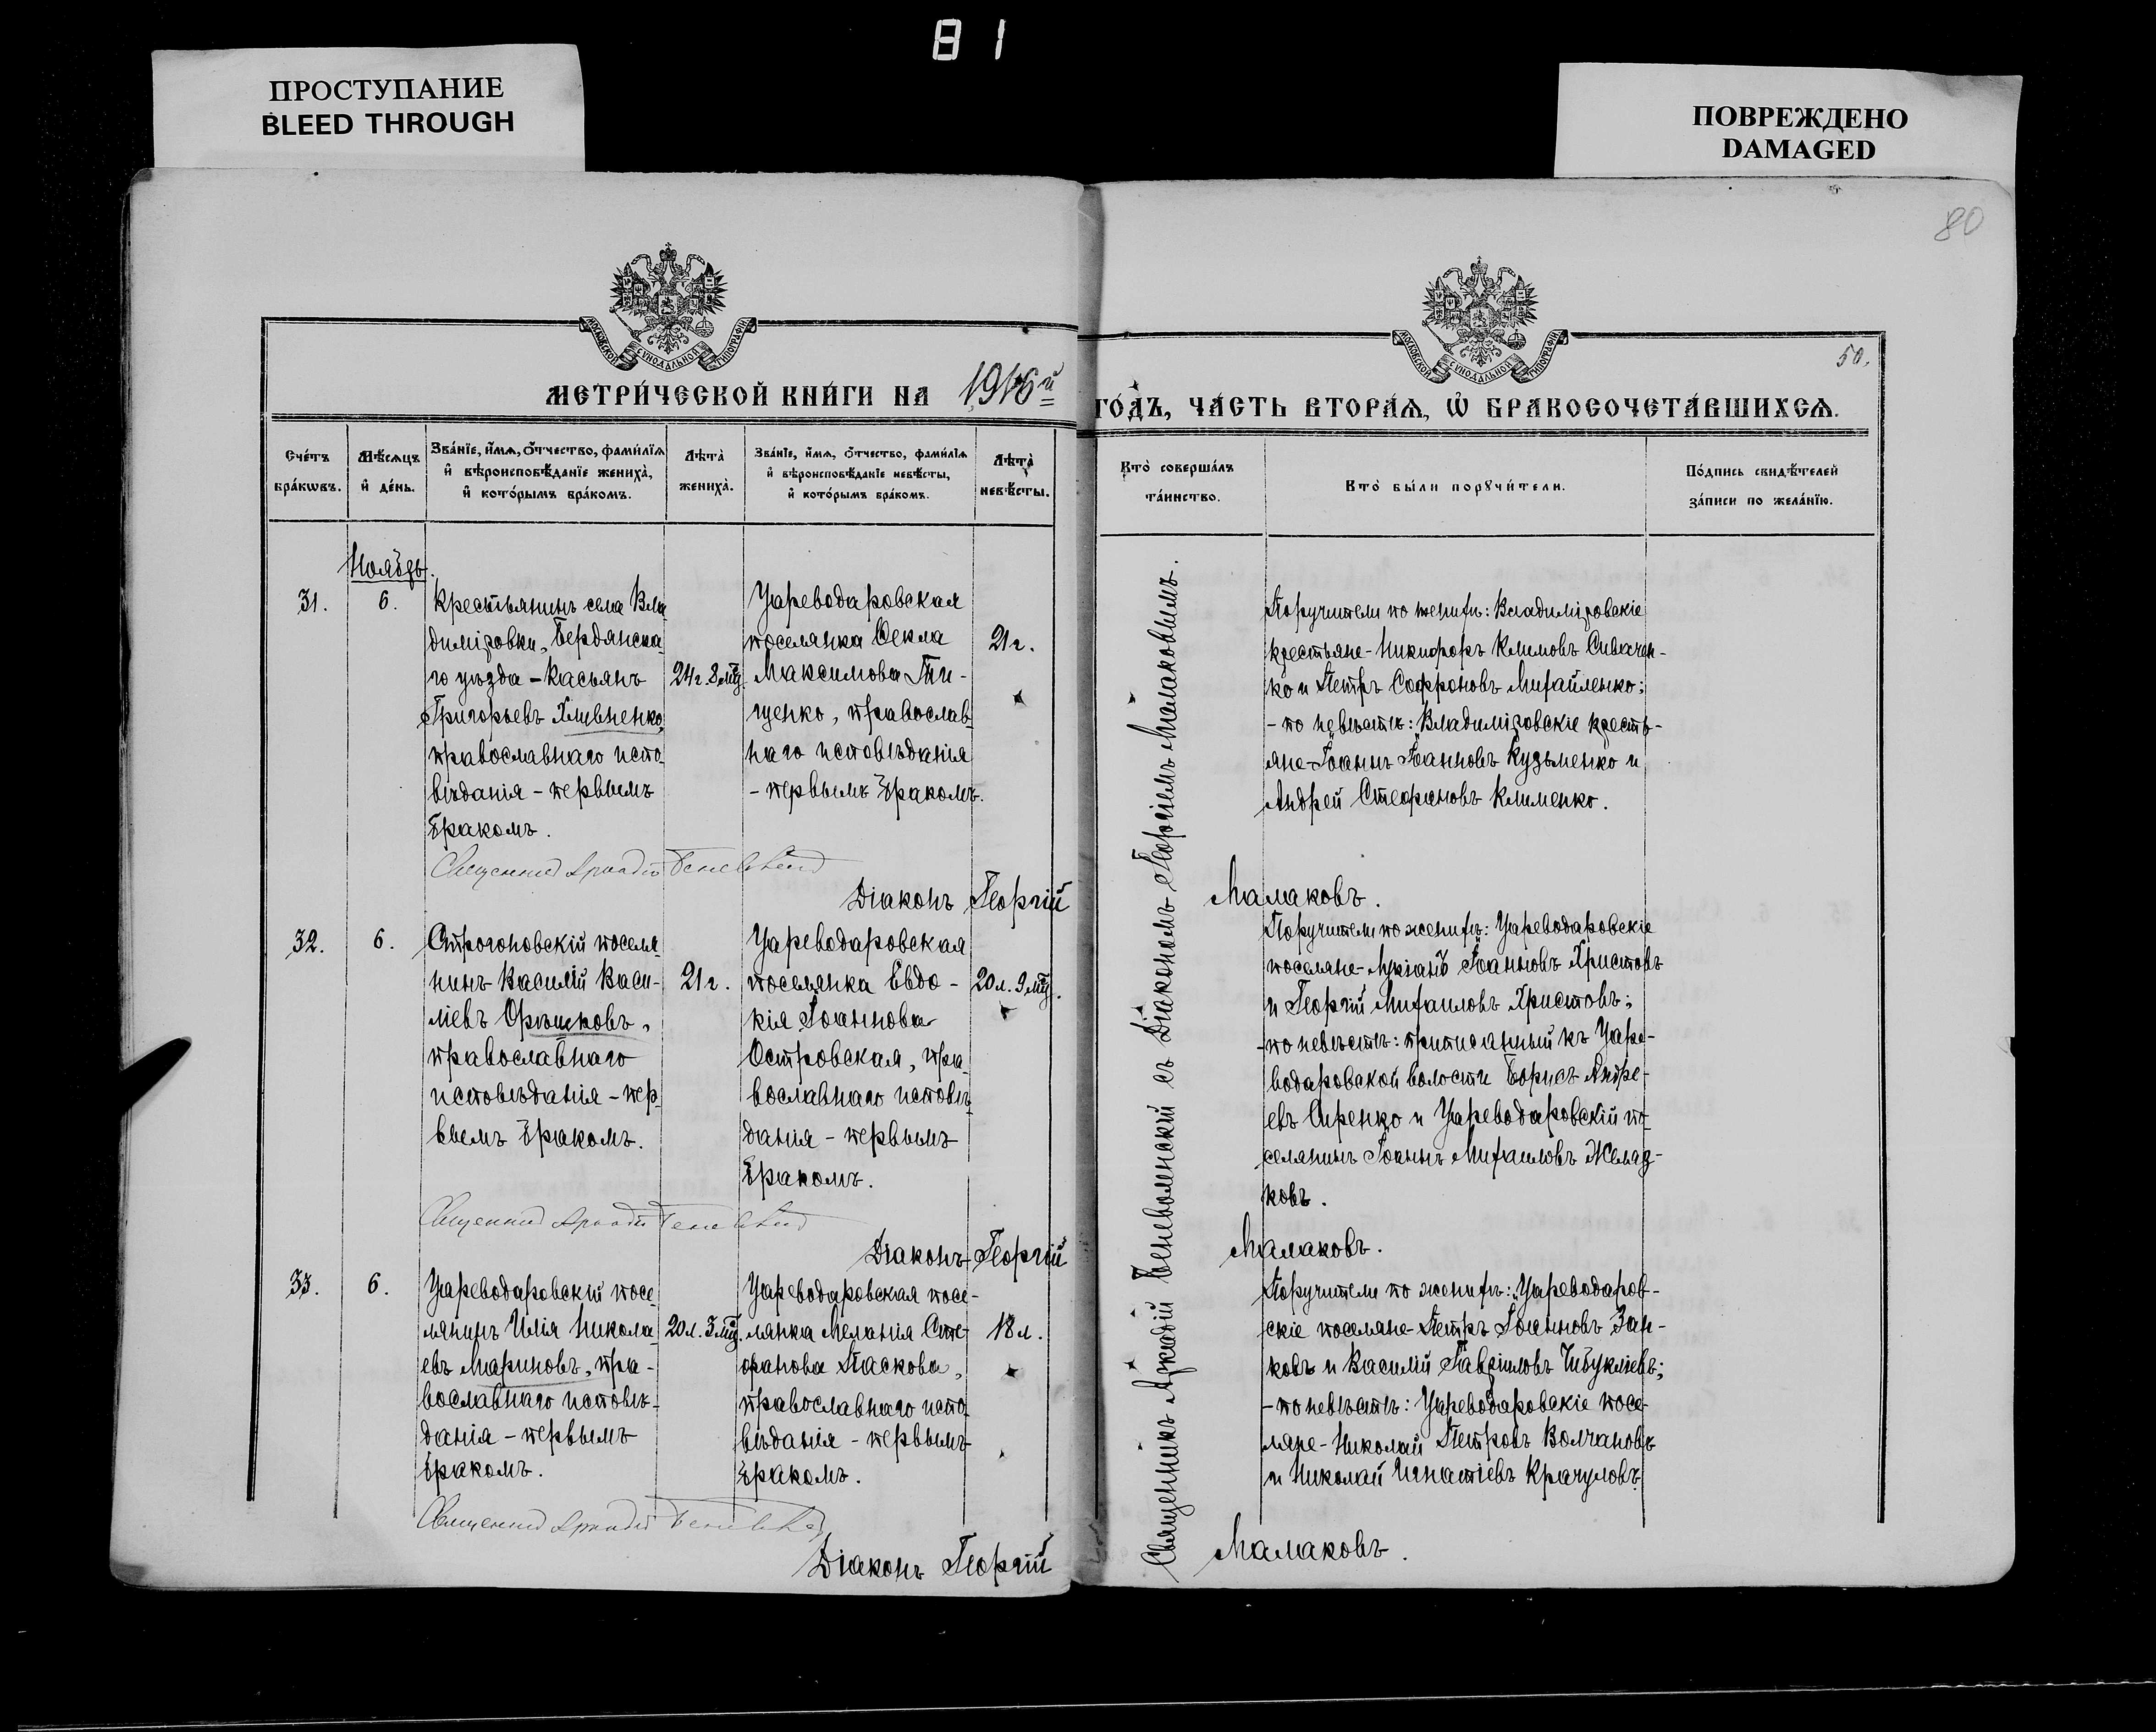 81
ПРОСТУПАНИЕ
BLEED THROUGH
ПОВРЕЖДЕНО
DAMAGED
80
МОСКОВСКОЙ СѴНОДАЛЬНОЙ ТИПОГРАФІИ
МОСКОВСКОЙ СѴНОДАЛЬНОЙ ТИПОГРАФІИ
50.
МЕТРИ́ЧЕСКОЙ КНИ́ГИ НА 1916й
ГО́ДЪ, ЧА́СТЬ ВТОРА́Ѧ, Ѡ҆ БРАКОСОЧЕТА́ВШИХСѦ.
Сче́тъ
бра́кѡвъ.
Мѣ́сѧцъ
и҆ де́нь.
Зва́нїе, и҆́мѧ, ѻ҆́тчество, фами́лїѧ
и҆ вѣроисповѣ́данїе жениха̀,
и҆ кото́рымъ бра́комъ.
Лѣта̀
жениха̀.
Зва́нїе, и҆́мѧ, ѻ҆́тчество, фами́лїѧ
и҆ вѣроисповѣ́данїе невѣ́сты,
и҆ кото́рымъ бра́комъ.
Лѣта̀
невѣ́сты.
Кто̀ соверша́лъ
та́инство.
Кто̀ бы́ли порꙋчи́тели.
По́дпись свидѣ́телей
за́писи по жела́нїю.
Ноябрь.
31.
6.
Крестьянинъ села Вла
димировки, Бердянска
го уѣзда - Касьянъ
Григорьевъ Хлывненко
православнаго испо
вѣданія - первымъ
бракомъ.
24 г. 8 мц.
Цареводаровская
поселянка Ѳекла
Максимова Ти-
щенко, православ
наго исповѣданія
- первымъ бракомъ.
21 г.
Поручители по женихѣ: Владиміровскіе
крестьяне - Никифоръ Климовъ Сивачен-
ко и Петръ Софроновъ Михайленко;
- по невѣстѣ: Владиміровскіе кресть-
яне - Іоаннъ Іоанновъ Кузьменко и
Андрей Стефановъ Клименко.
Священникъ Аркадій
Діаконъ Георгій
Малаковъ.
32.
6.
Строгоновскій поселя
нинъ Василій Васи-
ліевъ Орѣшковъ,
православнаго
исповѣданія - пер
вымъ бракомъ.
21 г.
Цареводаровская
поселянка Евдо-
кія Іоаннова
Островская, пра
вославнаго исповѣ
данія - первымъ
бракомъ.
20 л. 9 мц.
Поручители по женихѣ: Цареводаровскіе
поселяне - Лукіанъ Іоанновъ Христовъ
и Георгій Михаиловъ Христовъ;
- по невѣстѣ: приписанный къ Царе-
водаровской волости Борисъ Андре-
евъ Сиренко и Цареводаровскій по
селянинъ Іоаннъ Михаиловъ Желяз-
ковъ.
Священникъ Аркадій
Діаконъ Георгій
Малаковъ.
33.
6.
Цареводаровскій посе
лянинъ Илія Никола
евъ Мариновъ, пра-
вославнаго исповѣ-
данія - первымъ
бракомъ.
20 л. 3 мц.
Цареводаровская посе-
лянка Меланія Сте
фанова Паскова,
православнаго испо
вѣданія - первымъ
бракомъ.
18 л.
Поручители по женихѣ: Цареводаров-
скіе поселяне - Петръ Іоанновъ Зан-
ковъ и Василій Гавріиловъ Чибукліевъ;
- по невѣстѣ: Цареводаровскіе посе-
ляне - Николай Петровъ Волчановъ
и Николай Игнатіевъ Крачуловъ.
Священникъ Аркадій
Діаконъ Георгій
Малаковъ.
Священникъ Аркадій Беневоленскій съ Діакономъ Георгіемъ Малаковымъ.